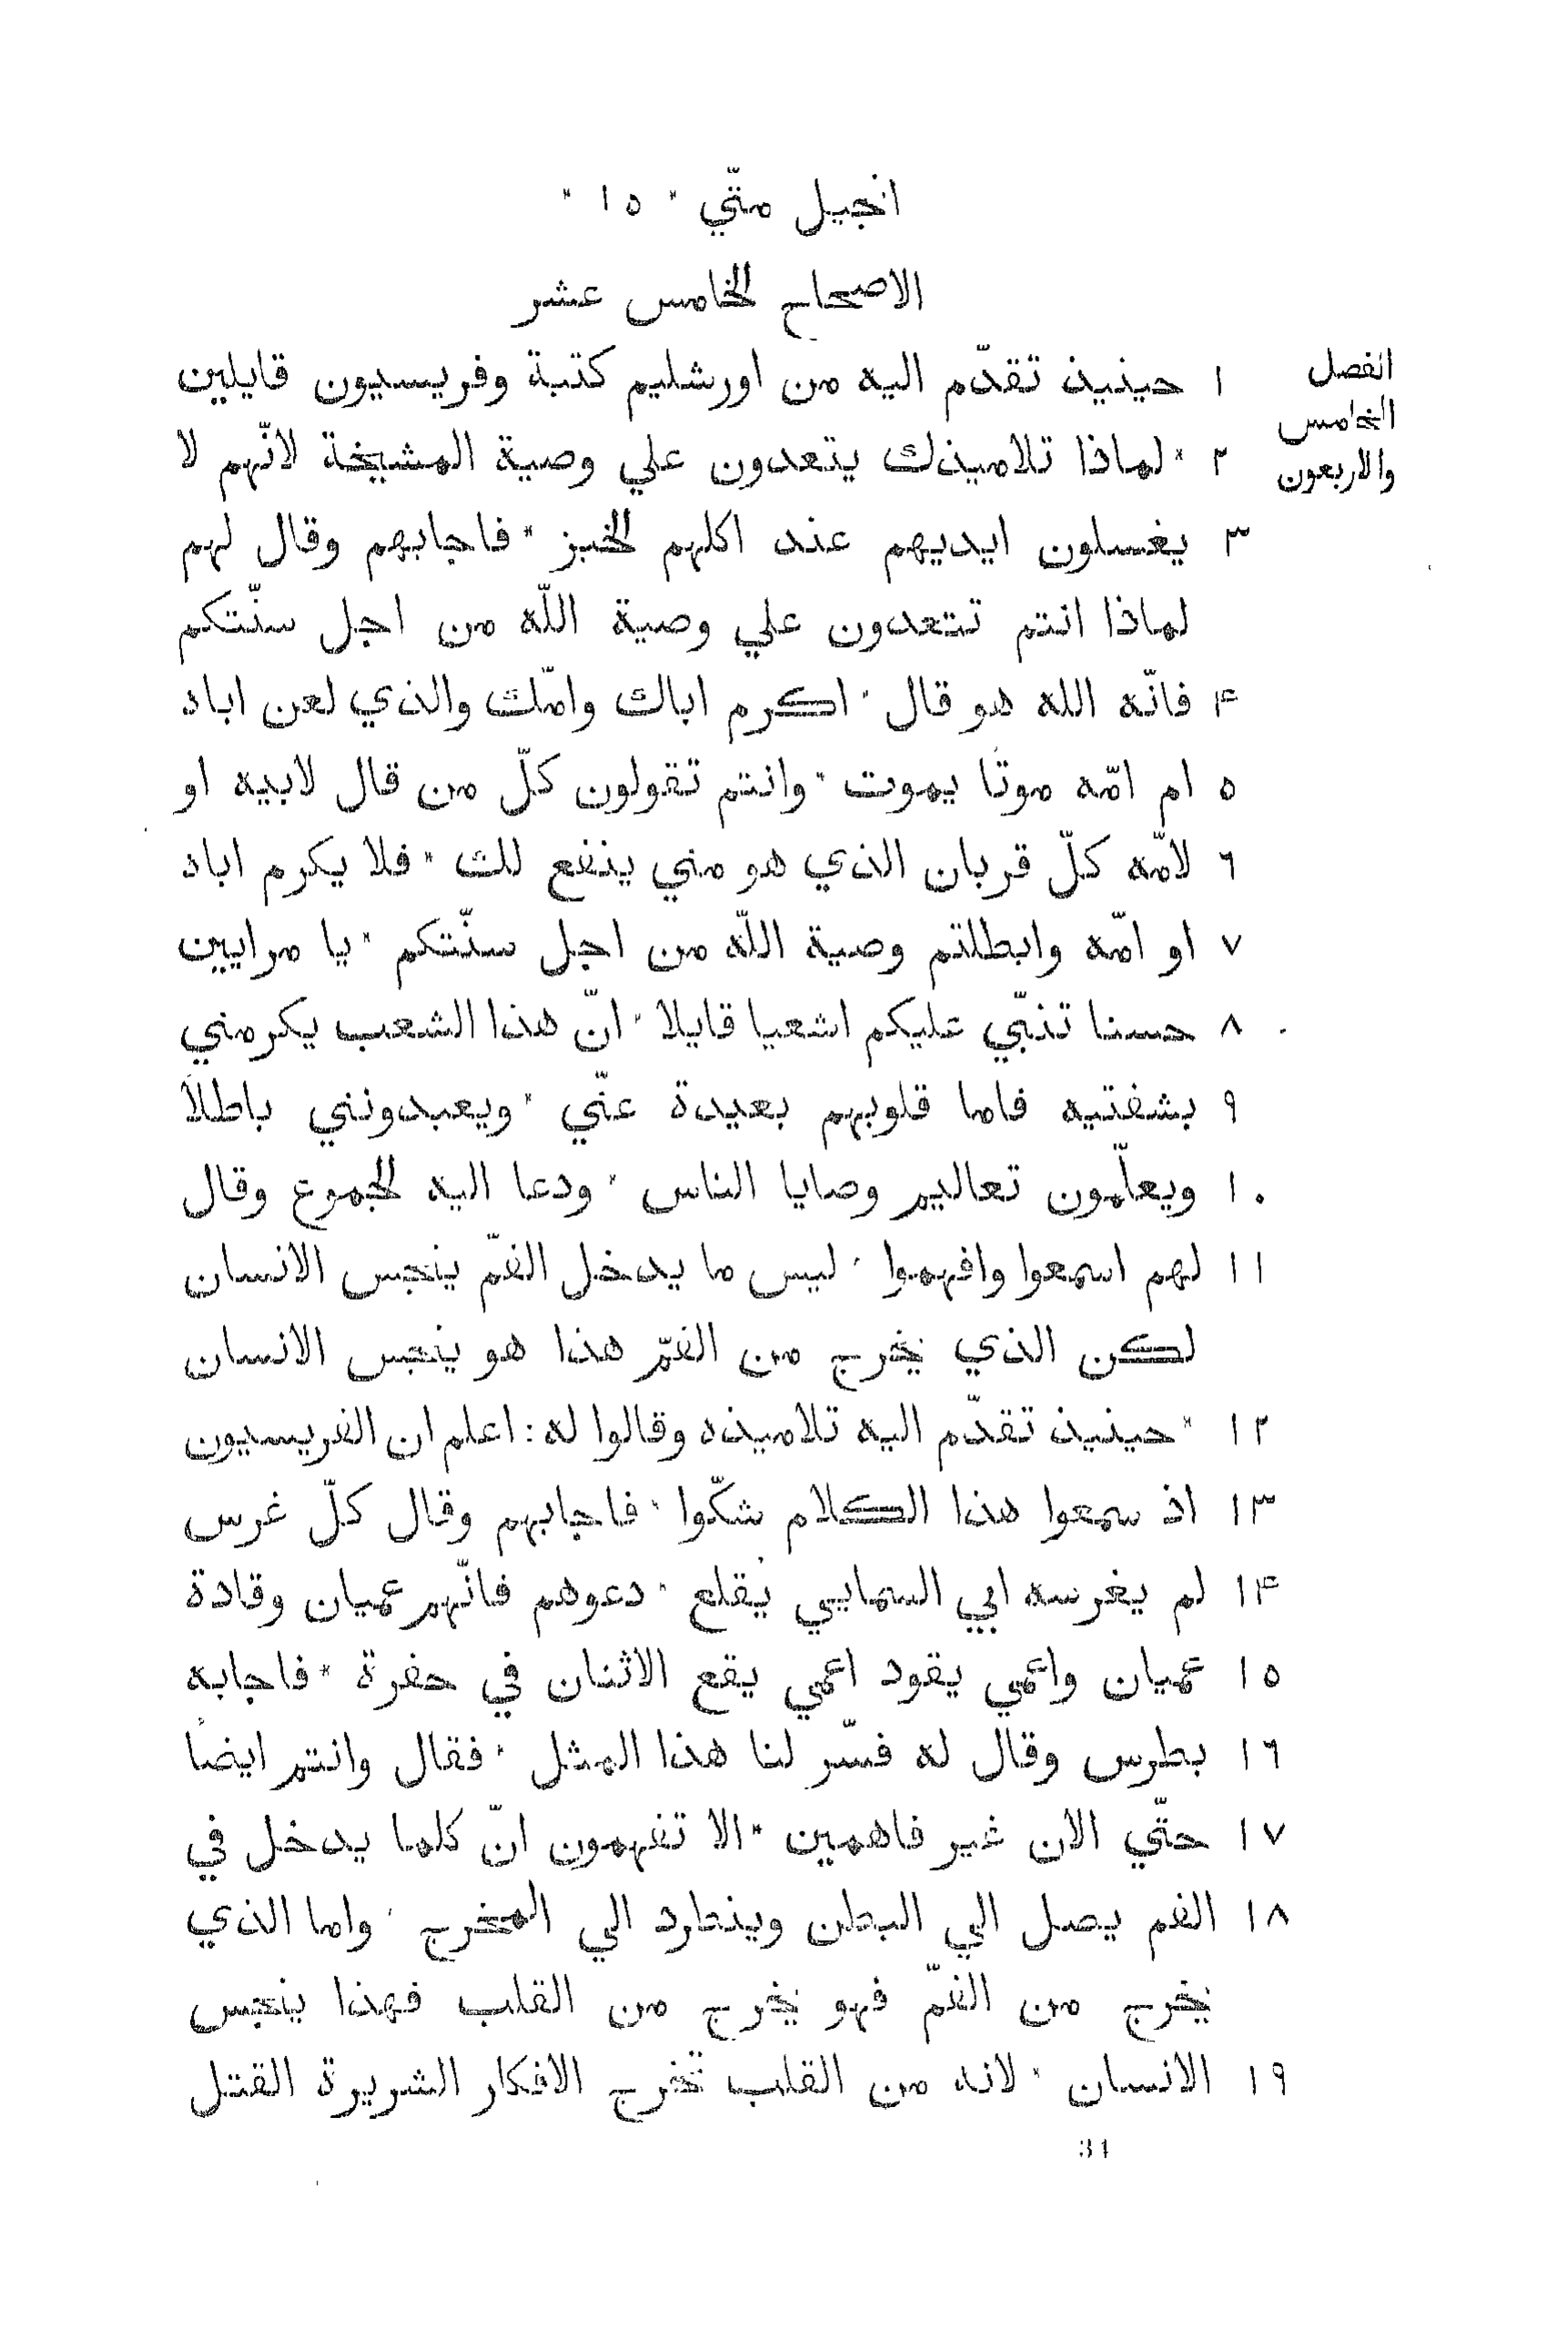 انجيل متّي * ١٥ *
الاصحاح الخامس عشر
الفصل
الخامس
والاربعون
١ حينيذ تقدّم اليه من اورشليم كتبة وفريسيون قايلين
٢ * لماذا تلاميذك يتعدون علي وصية المشيخة لانّهم لا
٣ يغسلون ايديهم عند اكلهم الخبز * فاجابهم وقال لهم
لماذا انتم تتعدون علي وصية اللّه من اجل سنّتكم
۴ فانّه الله هو قال * اكرم اباك وامّك والذي لعن اباه
٥ ام امّه موتًا يموت * وانتم تقولون كلّ من قال لابيه او
٦ لامّه كلّ قربان الذي هو مني ينفع لك * فلا يكرم اباه
٧ او امّه وابطلتم وصية اللّه من اجل سنّتكم * يا مرايين
٨ حسنا تنبّي عليكم اشعيا قايلا * انّ هذا الشعب يكرمني
٩ بشفتيه فاما قلوبهم بعيدة عنّي * ويعبدونني باطلاً
١٠ ويعلّمون تعاليم وصايا الناس * ودعا اليه الجموع وقال
١١ لهم اسمعوا وافهموا * ليس ما يدخل الفمّ ينجس الانسان
لكن الذي يخرج من الفمّ هذا هو ينجس الانسان
١٢ * حينيذ تقدّم اليه تلاميذه وقالوا له : اعلم ان الفريسيون
١٣ اذ سمعوا هذا الكلام شكّوا * فاجابهم وقال كلّ غرس
١۴ لم يغرسه ابي السمايي يُقلع * دعوهم فانّهم عميان وقادة
١٥ عميان واعمي يقود اعمي يقع الاثنان في حفرة * فاجابه
١٦ بطرس وقال له فسّر لنا هذا المثل * فقال وانتم ايضًا
١٧ حتّي الان غير فاهمين * الا تفهمون انّ كلما يدخل في
١٨ الفم يصل الي البطن وينطرد الي المخرج * واما الذي
يخرج من الفمّ فهو يخرج من القلب فهذا ينجس
١٩ الانسان * لانه من القلب تخرج الافكار الشريرة القتل
34